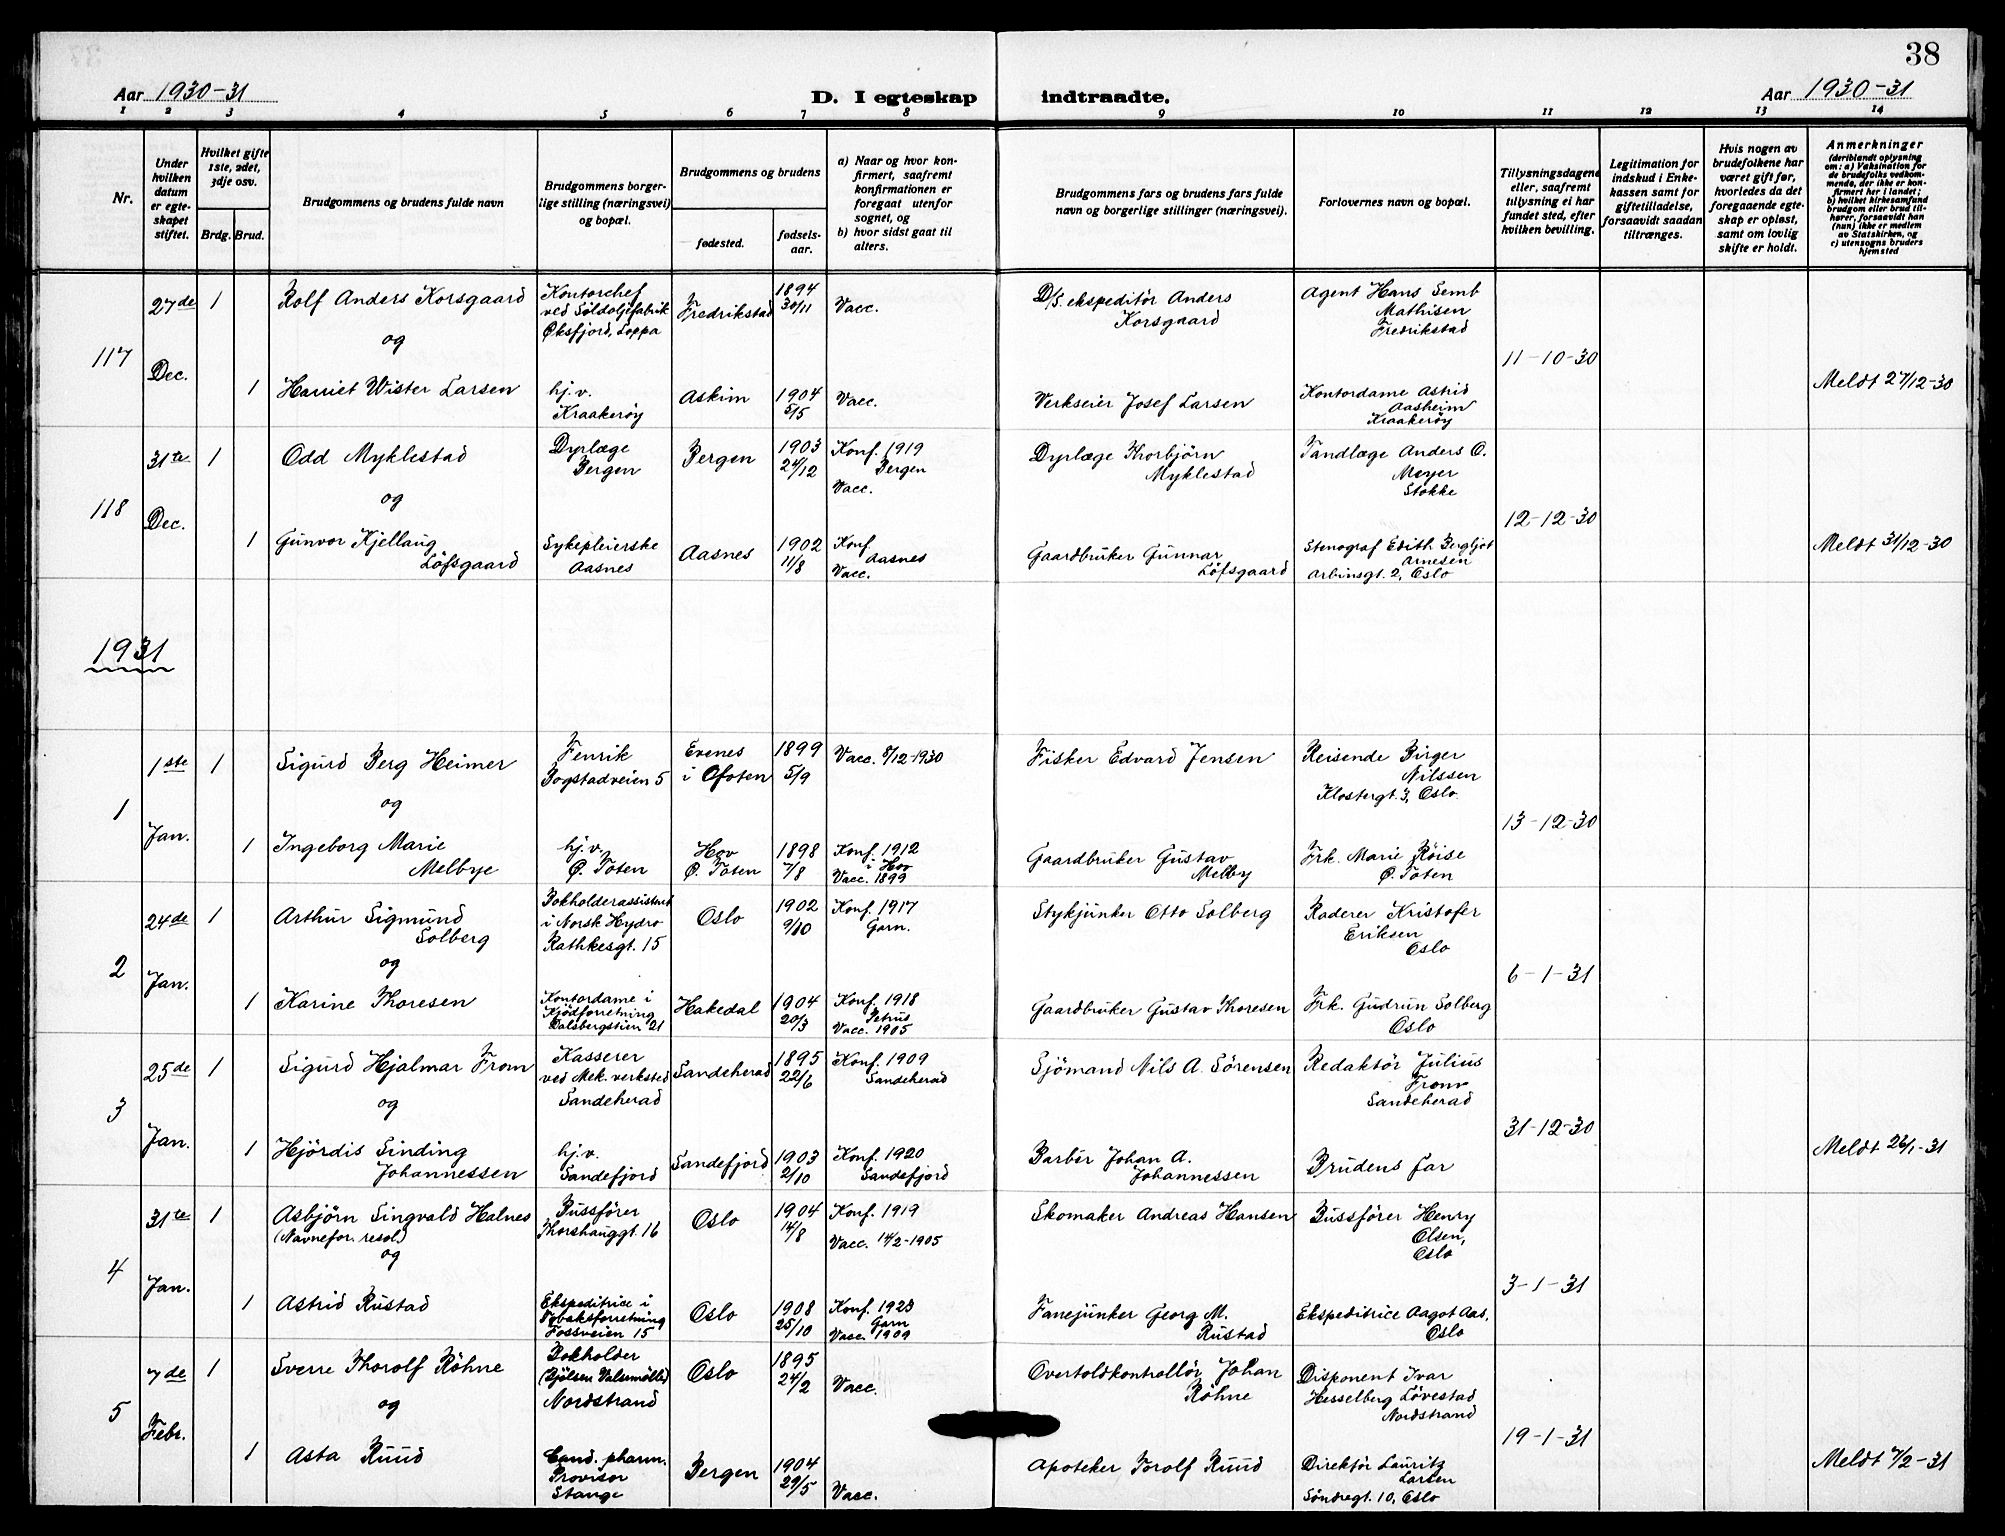 38
Aar 1930-31
D. I egteskap indtraadte.
Aar 1930-31
1 2 3 4 5 6 7 8 9 10 11 12 13 14
Nr.
Under hvilken datum er egteskapet stiftet.
Hvilket gifte 1ste, 2det, 3dje osv.
Brdg. Brud.
Brudgommens og brudens fulde navn
Brudgommens borgerlige stilling (næringsvei) og bopæl.
Brudgommens og brudens
fødested.
fødselsaar.
a) Naar og hvor konfirmert, saafremt konfirmationen er foregaat utenfor sognet, og
b) hvor sidst gaat til alters.
Brudgommens fars og brudens fars fulde navn og borgerlige stillinger (næringsvei).
Forlovernes navn og bopæl.
Tillysningsdagene eller, saafremt tillysning ei har fundet sted, efter hvilken bevilling.
Legitimation for indskud i Enkekassen samt for giftetilladelse, forsaavidt saadan tiltrænges.
Hvis nogen av brudefolkene har været gift før, hvorledes da det foregaaende egteskap er opløst, samt om lovlig skifte er holdt.
Anmerkninger
(deriblandt oplysning om: a) Vaksination for de brudefolks vedkommende, der ikke er konfirmert her i landet; b) hvilket kirkesamfund brudgom eller brud tilhører, forsaavidt han (hun) ikke er medlem av Statskirken, og c) utensogns bruders hjemsted
117
27de Dec.
1
Rolf Anders Korsgaard
Kontorchef
ved Sildoljefabrik
Øksfjord, Loppa
Fredrikstad
1894
30/11
Vacc.
D/S. ekspeditör Anders
Korsgaard
Agent Hans Semb
Mathisen
Fredrikstad
og
11-10-30
1
Harriet Wister Larsen
hj.v.
Kraakerøy
Askim
1904
5/5
Vacc.
Verkseier Josef Larsen
Kontordame Astrid
Aasheim
Kraakerøy
Meldt 27/12-30
118
31te Dec.
1
Odd Myklestad
Dyrlæge
Bergen
Bergen
1903
24/12
Konf. 1919
Bergen
Vacc.
Dyrlæge Thorbjörn
Myklestad
Tandlæge Anders O.
Meyer
Stokke
og
12-12-30
1
Gunvor Kjellaug
Löfsgaard
Sykepleierske
Aasnes
Aasnes
1902
11/8
Konf
Aasnes
Vacc.
Gaardbruker Gunnar
Löfsgaard
Stenograf Edith Bergljot
Arnesen
Arbinsgt. 2, Oslo
Meldt 31/12-30
1931
1
1ste Jan.
1
Sigurd Berg Heimer
Fenrik
Bogstadveien 5
Evenes
i Ofoten
1899
5/9
Vacc. 8/12-1930
Fisker Edvard Jensen
Reisende Birger
Nilssen
Klostergt. 3, Oslo.
og
13-12-30
1
Ingeborg Marie
Melbye
hj.v.
Ø. Toten
Hov
Ø. Toten
1898
7/8
Konf. 1912
i Hov
Vacc. 1899
Gaardbruker Gustav
Melby
Frk. Marie Röise
Ø. Toten
2
24de Jan.
1
Arthur Sigmund
Solberg
Bokholderassistent
i Norsk Hydro
Rathkesgt. 15
Oslo
1902
9/10
Konf. 1917
Garn.
Stykjunker Otto Solberg
Raderer Kristofer
Eriksen
Oslo
og
6-1-31
1
Karine Thoresen
Kontordame i
Kjödforretning
Dalsbergstien 21
Hakedal
1904
20/3
Konf. 1918
Petrus
Vacc. 1905
Gaardbruker Gustav Thoresen
Frk. Gudrun Solberg
Oslo
3
25de Jan.
1
Sigurd Hjalmar From
Kasserer
ved Mek. verksted
Sandeherad
Sandeherad
1895
22/6
Konf. 1909
Sandeherad
Sjömand Nils A. Sörensen
Redaktör Julius
From
Sandeherad
og
31-12-30
1
Hjördis Sinding
Johannessen
hj.v.
Sandefjord
Sandefjord
1903
2/10
Konf. 1920
Sandefjord
Barbér Johan A.
Johannessen
Brudens far
Meldt 26/1-31
4
31te Jan.
1
Asbjörn Singvald Halnes
(Navnefor. resol.)
Bussförer
Thorshauggt. 16
Oslo
1904
14/8
Konf. 1919
Vacc. 14/2-1905
Skomaker Andreas Hansen
Bussförer Henry
Olsen,
Oslo
og
3-1-31
1
Astrid Rustad
Ekspeditrice i
Tobaksforretning
Fossveien 15
Oslo
1908
25/10
Konf. 1923
Garn
Vacc. 1909
Fanejunker Georg M.
Rustad
Ekspeditrice Aagot Aas,
Oslo
5
7de Febr.
1
Sverre Thorolf Röhne
Bokholder
(Bjölsen Valsemölle)
Nordstrand
Oslo
1895
24/2
Vacc.
Overtoldkontrollör Johan
Röhne
Disponent Ivar
Hesselberg Lövestad
Nordstrand
og
19-1-31
1
Asta Ruud
Cand. pharm.
Provisor
Stange
Bergen
1904
29/5
Vacc.
Apoteker Torolf Ruud
Direktör Lauritz
Larsen
Söndregt. 10, Oslo
Meldt 7/2-31